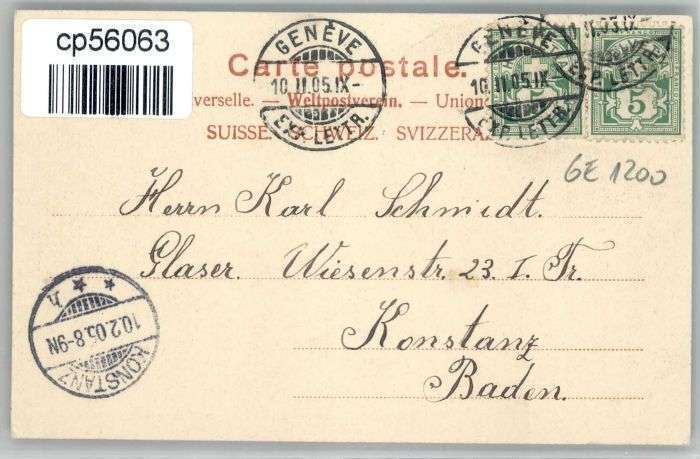 cp56063
GENÈVE
10.II.05.IX-
EXP. LETTR.
GENÈVE
10.II.05.IX-
EXP. LETTR.
EXP. LETTR.
5
Carte postale.
verselle. — Weltpostverein. — Union
SUISSE. SCHWEIZ. SVIZZERA.
GE 1200
Herrn Karl Schmidt.
Glaser. Wiesenstr. 23. I. Tr.
Konstanz
Baden.
KONSTANZ
10.2.05.8-9N
* h *